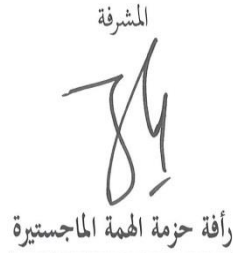 المشرفة
رأفة حزمة الهمة الماجستيرة